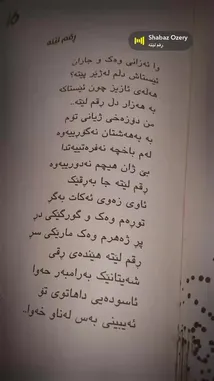 ڕقم لێتە
Shabaz Ozery
ڕقم لێتە
وا ئەزانی وەک و جاران
ئێستاش دڵم لەژێر پێتە؟
هەڵەی ئازیز چون ئێستاکە
بە هەزار دڵ ڕقم لێتە..
من دۆزەخی ژیانی تۆم
بە بەهەشتان نەگۆڕییەوە
لەم باخچە نەفرەتییەتدا
بێ ژان هیچم نەدورییەوە
ڕقم لێتە جا بەڕقێک
ئاوی زەوی ئەکات بەگڕ
تووڕەم وەک و گورگێکی دڕ
پڕ ژەهرم وەک مارێکی سڕ
ڕقم لێتە هێندەی ڕقی
شەیتانێک بەرامبەر حەوا
ئاسودەیی داهاتوی تۆ
ئەیبینی بەس لەناو خەوا..